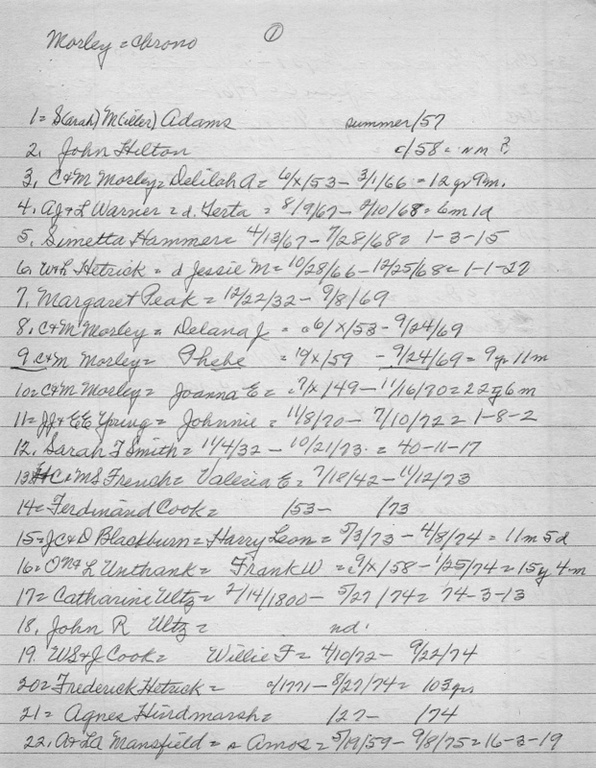 Morley = Chrono ①
1 = S(arah) M(iller) Adams summer/57
2. John Hilton c/58 = nm ?
3. C&M Morley = Delilah A = 6/x/53 - 3/1/66 = 12 yr 9m.
4. AJ&L Warner = d. Gerta = 8/9/67 - 2/10/68 = 6m 1d
5. Simetta Hammer = 4/13/67 - 7/28/68 = 1-3-15
6. W&L Hetrick = d Jessie M = 10/28/66 - 12/25/68 = 1-1-27
7. Margaret Peak = 12/22/32 - 9/8/69
8. C&M Morley = Delana J = c6/x/53 - 9/24/69
9 C&M Morley = Phebe = 19x/59 - 9/24/69 = 9 yr 11m
10 = C&M Morley = Joanna E = c7/x/49 - 11/16/70 = 22 y 6m
11 = JJ&EE Young = Johnnie = 11/8/70 - 7/10/72 = 1-8-2
12. Sarah T Smith = 11/4/32 - 10/21/73 = 40-11-17
13 HC&MS French = Valeria E = 7/18/42 - 11/12/73
14 = Ferdinand Cook = /53 - /73
15 = JC&D Blackburn = Harry Leon = 5/3/73 - 4/8/74 = 11m 5d
16 = ON&L Unthank = Frank W = c9/x/58 - 1/25/74 = 15y 4m
17 = Catharine Ultz = 2/14/1800 - 5/27/74 = 74-3-13
18. John R Ultz = nd
19. WS&J Cook = Willie F = 4/10/72 - 9/22/74
20 = Frederick Hetrick = c/1771 - 8/27/74 = 103 yrs
21 = Agnes Hindmarsh = /27 - /74
22. A&LA Mansfield = s Amos = 5/19/59 - 9/8/75 = 16-3-19